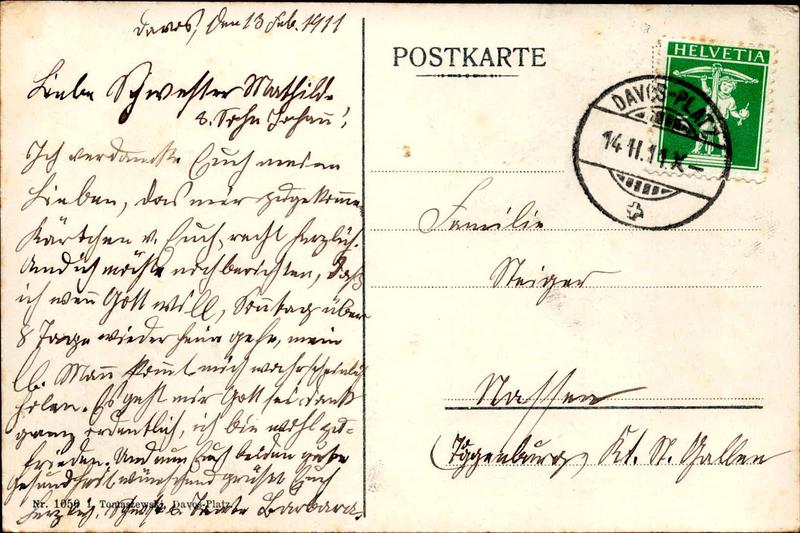 Davos, den 13 Feb. 1911
Liebe Schwester Mathilde
& Sohn Johann!
Ich verdanke Euch meinen
Lieben, das mir zugekomme
Kärtchen v. Euch, recht herzlich.
Und ich möchte noch berichten, daß
ich wenn Gott will, Sonntag über
8 Tage wieder heim gehe, mein
lb. Mann kommt mich wahrscheinlich
holen. Es geht mir Gott sei Dank
ganz ordentlich, ich bin wohl zu-
frieden. Und nun Euch beiden gute
Gesundheit wünschend grüßt Euch
herzlich, Tante Barbara.
Nr. 1050 J. Tomaszewski, Davos-Platz
POSTKARTE
HELVETIA
5
DAVOS-PLATZ
14.II.11.X-
Familie
Steiger
Nassen
(Toggenburg) Kt. St. Gallen